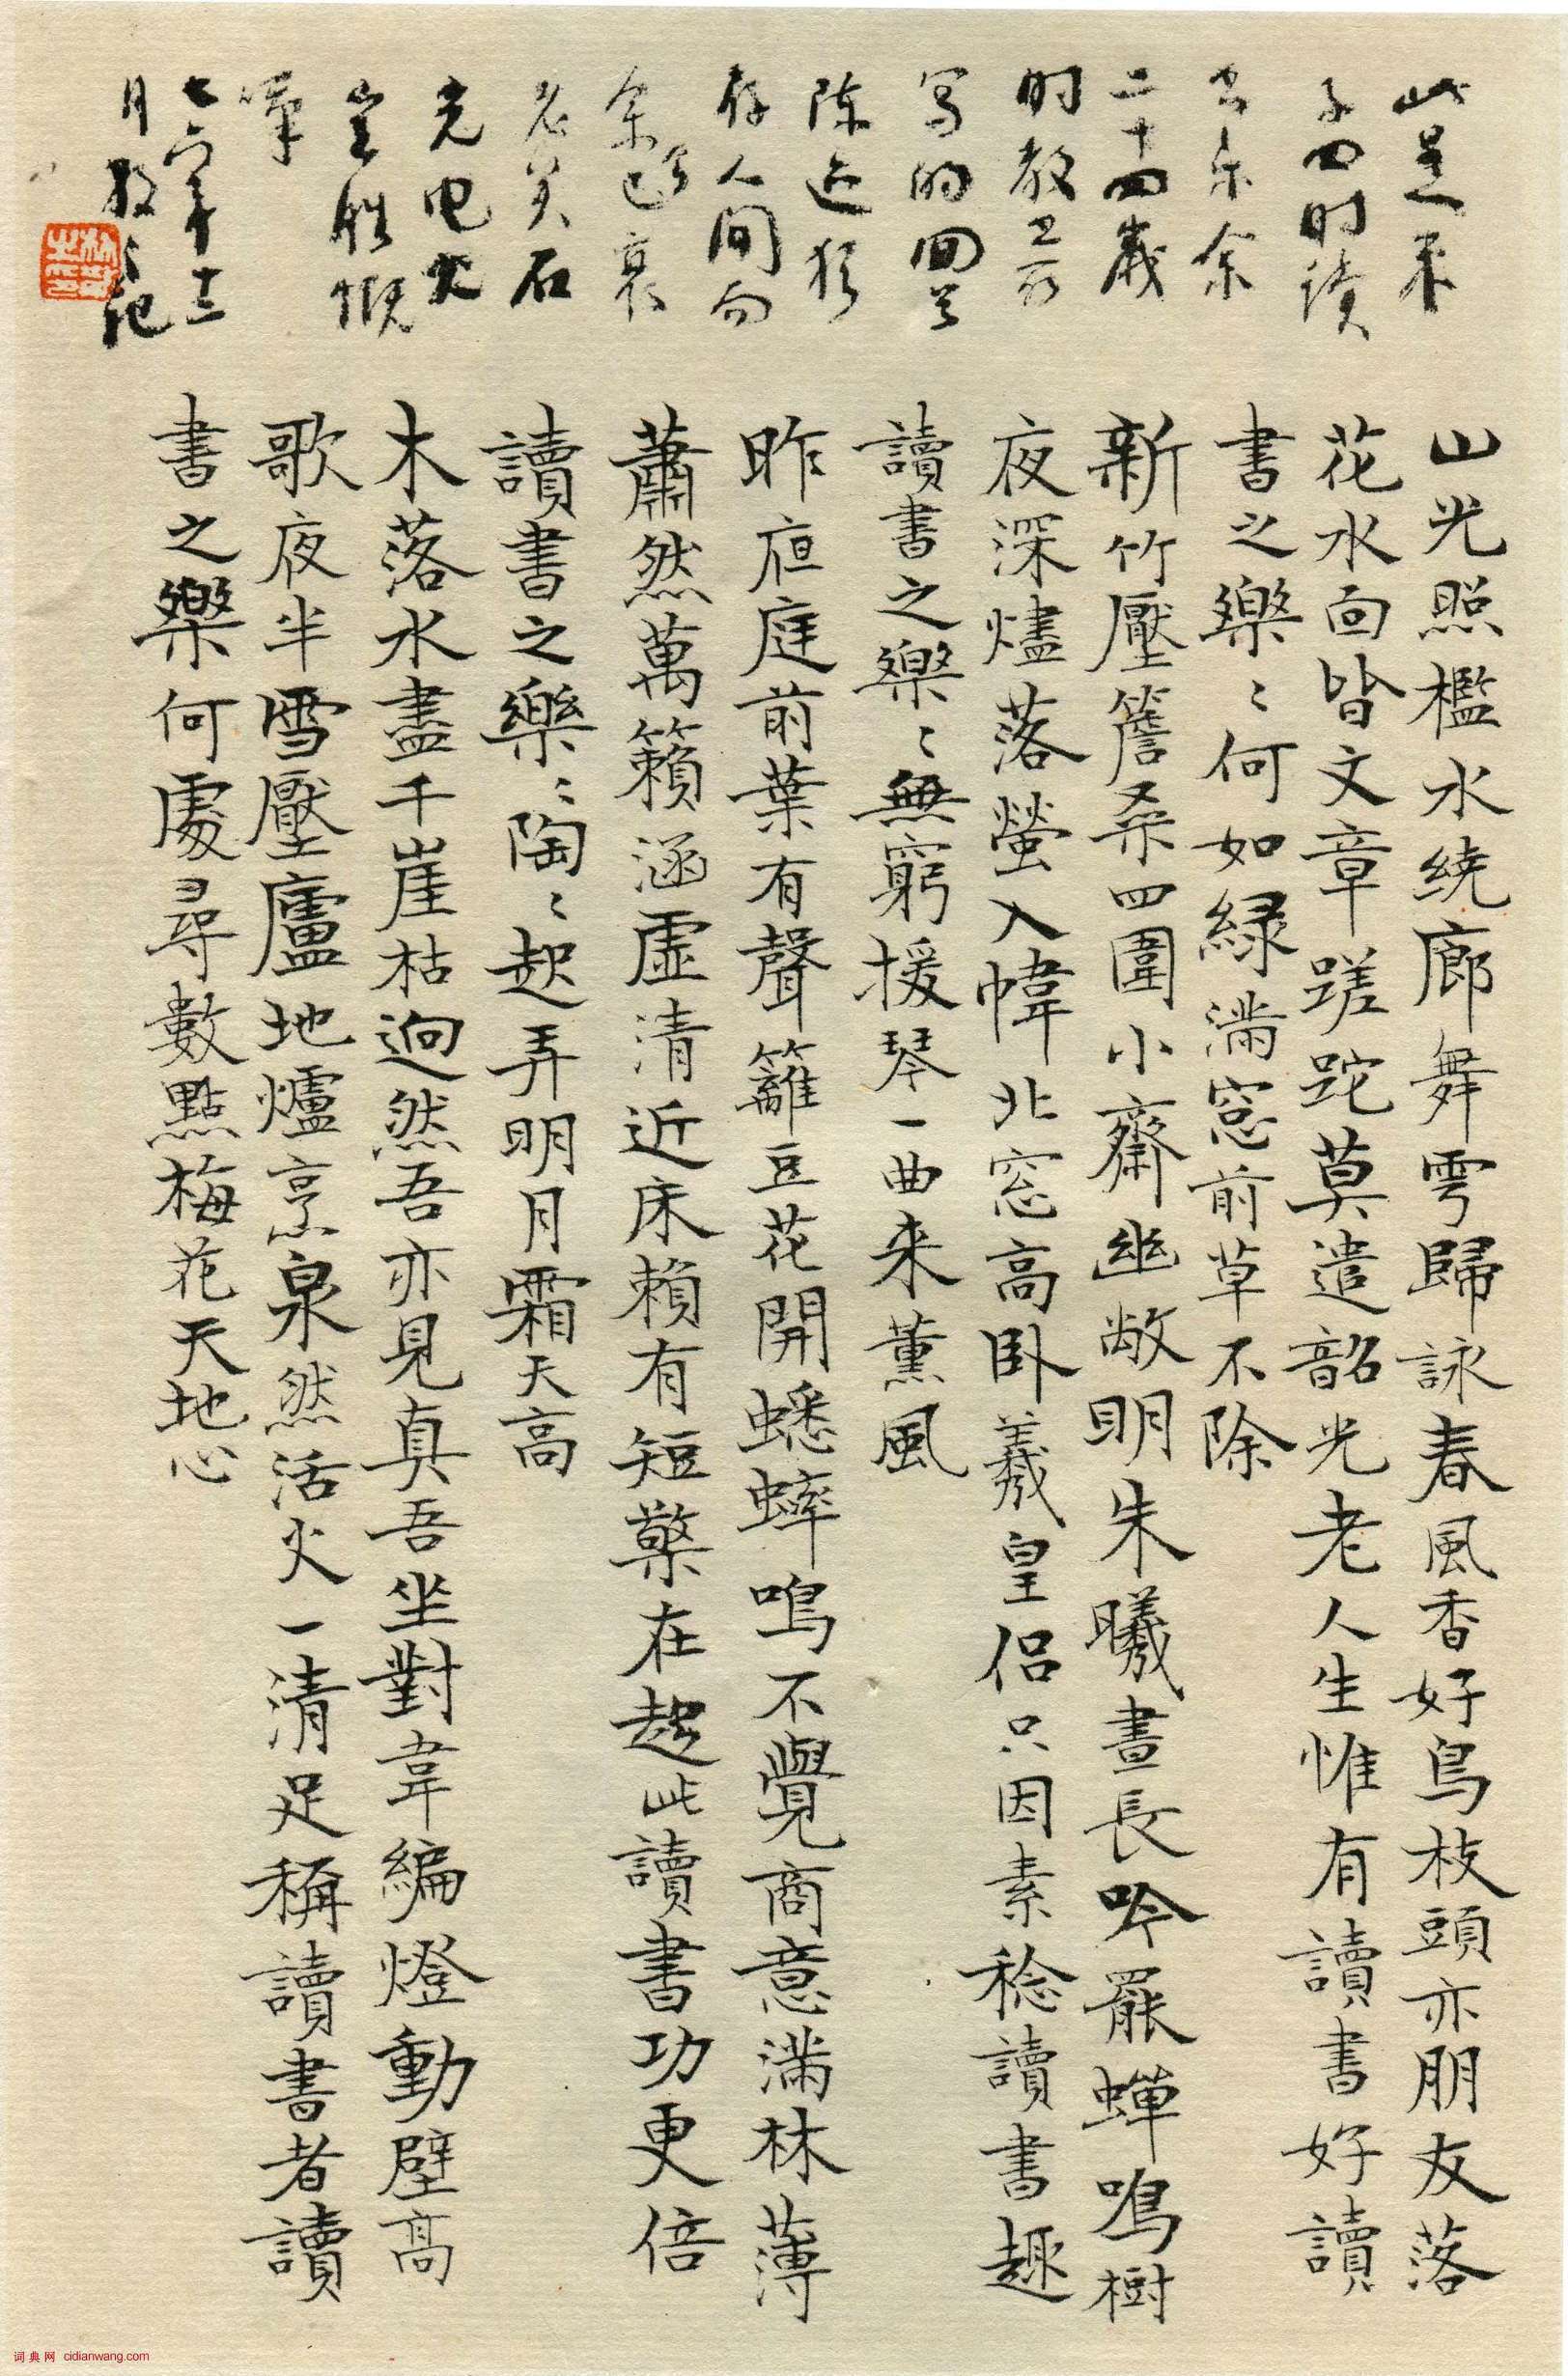 此是朱
子四时读
书乐余
二十四岁
时教卫公
写的回首
陈迹犹
存人间而
余已衰
老矣石
光电火
岂胜慨
叹
七六年十二
月散之记
山光照檻水繞廊舞雩歸詠春風香好鳥枝頭亦朋友落
花水面皆文章蹉跎莫遣韶光老人生惟有讀書好讀
書之樂〻何如綠滿窓前草不除
新竹壓簷桑四圍小齋幽敞明朱曦晝長吟罷蟬鳴樹
夜深燼落螢入幃北窓高臥羲皇侣只因素稔讀書趣
讀書之樂〻無窮援琴一曲来薰風
昨夜庭前葉有聲籬豆花開蟋蟀鳴不覺商意滿林薄
蕭然萬籟涵虛清近床賴有短檠在趂此讀書功更倍
讀書之樂〻陶〻起弄明月霜天高
木落水盡千崖枯迥然吾亦見真吾坐對韋編燈動壁高
歌夜半雪壓廬地爐烹泉然活火一清足稱讀書者讀
書之樂何處尋數點梅花天地心
词典网 cidianwang.com